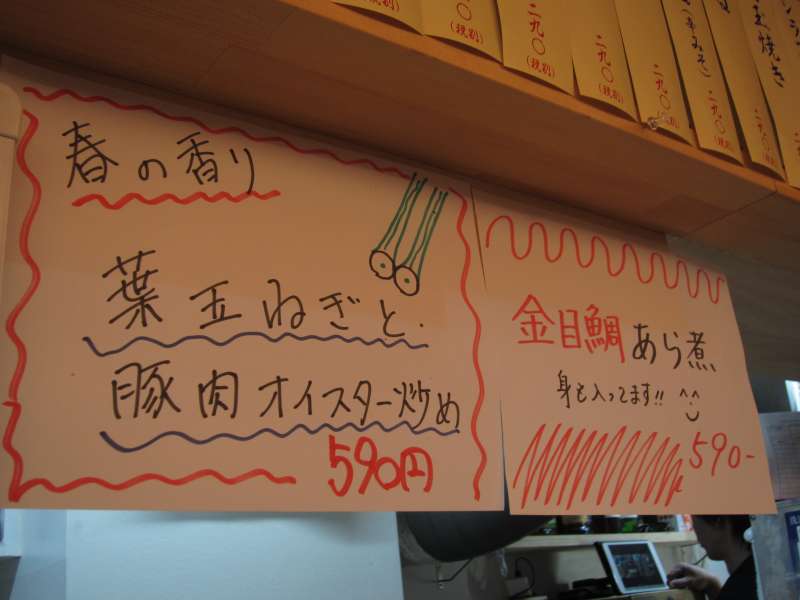 二九〇
(税別)
二九〇
(税別)
二九〇
(税別)
二九〇
(税別)
二九〇
(税別)
春の香り
葉玉ねぎと
豚肉オイスター炒め
590円
金目鯛あら煮
身も入ってます!! ^^
590-